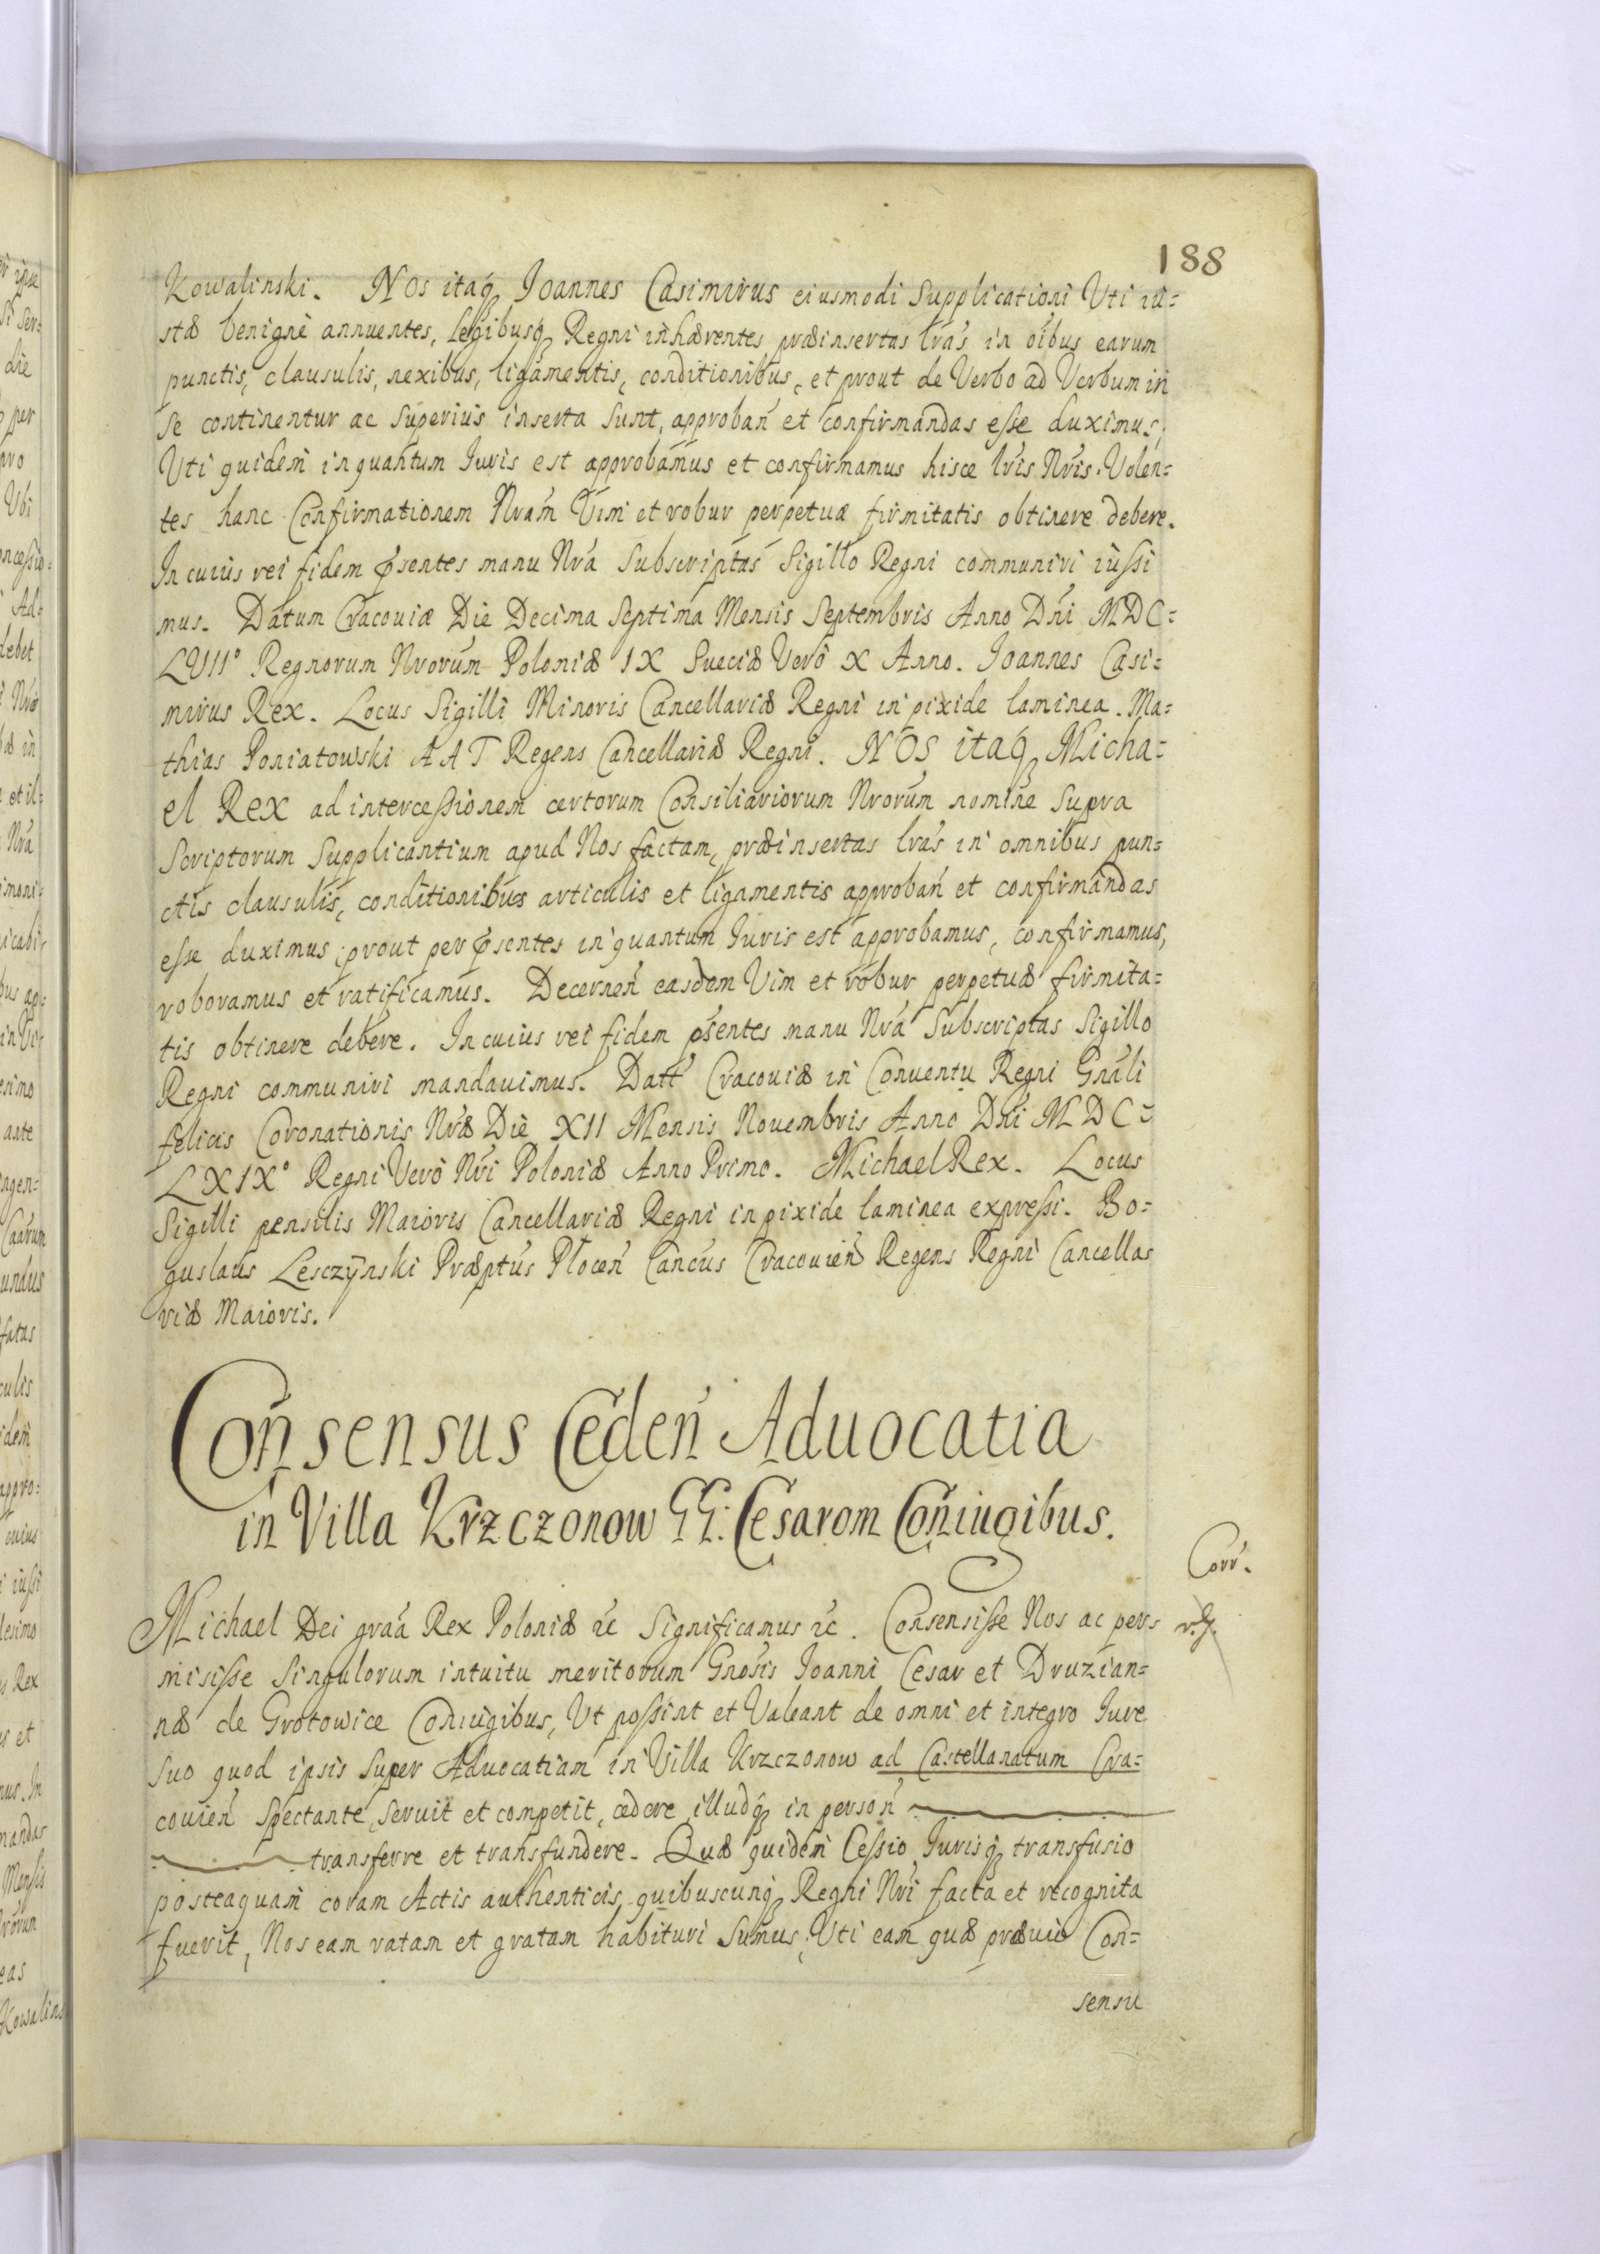 188
Kowalinski. Nos itaq Joannes Casimirus eiusmodi Supplicationi Uti iu=
stæ benigne annuentes, Legibusq Regni inhærentes præinsertas lras in oibus earum
punctis, clausulis, nexibus, ligamentis, conditionibus, et prout de Verbo ad Verbum in
se continentur ac superius inserta sunt, approban et confirmandas esse duximus,
Uti quidem inquantum Iuris est approbamus et confirmamus hisce lris Nris. Volen=
tes hanc Confirmationem Nram Vim et robur perpetuæ firmitatis obtinere debere.
In cuius rei fidem psentes manu Nra Subscriptas Sigillo Regni communiri iussi
mus. Datum Cracoviæ Die Decima Septima Mensis Septembris Anno Dni MDC=
LVIII° Regnorum Nrorum Poloniæ IX Sueciæ Vero X Anno. Joannes Casi=
mirus Rex. Locus Sigilli Minoris Cancellariæ Regni in pixide laminea. Ma=
thias Poniatowski AAT Regens Cancellariæ Regni. Nos itaq Micha=
el Rex ad intercessionem certorum Consiliariorum Nrorum nomine supra
Scriptorum Supplicantium apud Nos factam, præinsertas lras in omnibus pun=
ctis clausulis, conditionibus articulis et ligamentis approban et confirmandas
esse duximus, prout per psentes inquantum Iuris est approbamus, confirmamus,
roboramus et ratificamus. Decernen easdem Vim et robur perpetuæ firmita=
tis obtinere debere. In cuius rei fidem psentes manu Nra Subscriptas Sigillo
Regni communiri mandauimus. Datt Cracouiæ in Conuentu Regni Gnali
felicis Coronationis Nræ Die XII Mensis Nouembris Anno Dni MDC=
LXIX° Regni Vero Nri Poloniæ Anno Primo. Michael Rex. Locus
Sigilli pensilis Maioris Cancellariæ Regni in pixide laminea expressi. Bo=
guslaus Lesczÿnski Præptus Plocen Cancus Cracouien Regens Regni Cancella=
riæ Maioris.
Consensus Ceden Aduocatia
in Villa Krzczonow GG: Cesarom Coniugibus.
Corr.
Michael Dei graa Rex Poloniæ &c Significamus &c. Consensisse Nos ac per=
misisse Singulorum intuitu meritorum Gnosis Joanni Cesar et Druzian=
næ de Grotowice Coniugibus, Ut possint et Valeant de omni et integro Iure
suo quod ipsis super Aduocatiam in Villa Krzczonow ad Castellanatum Cra=
couien spectante, seruit et competit, cedere illudq in person
transferre et transfundere. Quæ quidem Cessio Iurisq transfusio
posteaquam coram Actis authenticis quibuscunq Regni Nri facta et recognita
fuerit, Nos eam ratam et gratam habituri sumus, Uti eam quæ præuio Con=
sensu